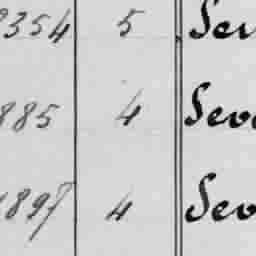 354 5 Ser
885 4 Seve
1897 4 Sev